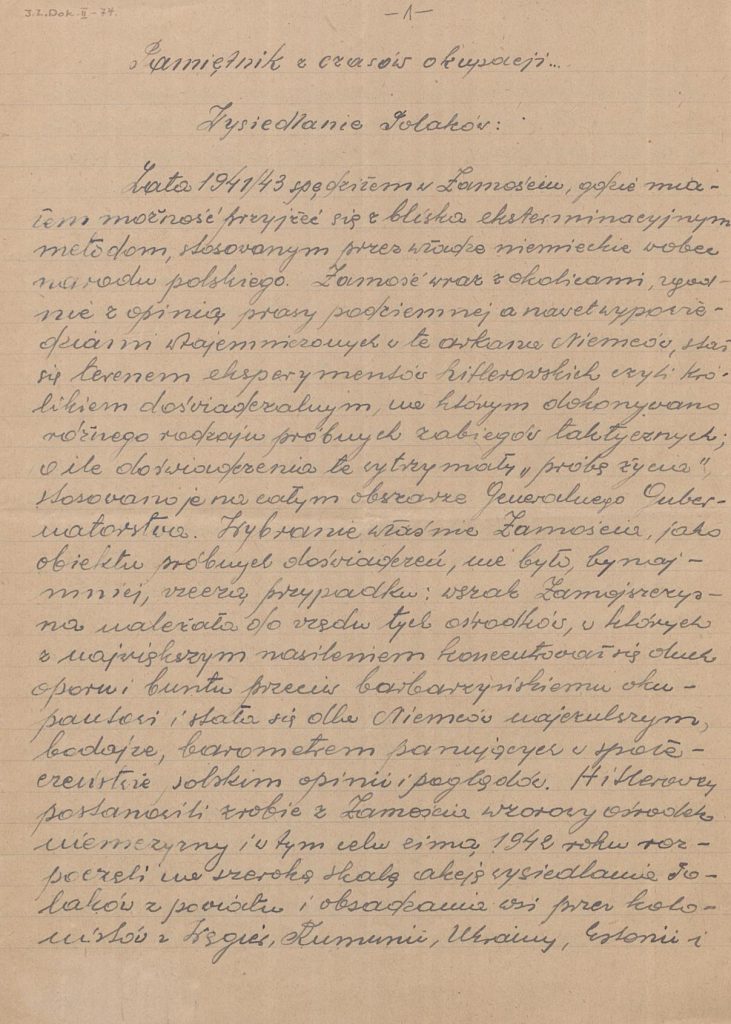 J.Z.Dok.II-74.
-1-
Pamiętnik z czasów okupacji...
Wysiedlanie Polaków:
Lata 1941/43 spędziłem w Zamościu, gdzie mia-
łem możność przyjżeć się z bliska eksterminacyjnym
metodom, stosowanym przez władze niemieckie wobec
narodu polskiego. Zamość wraz z okolicami, zgod-
nie z opinią prasy podziemnej a nawet wypowie-
dziami wtajemniczonych w te arkana Niemców, stał
się terenem eksperymentów hitlerowskich czyli kró-
likiem doświadczalnym, na którym dokonywano
różnego rodzaju próbnych zabiegów taktycznych;
o ile doświadczenia te wytrzymały „próbę życia",
stosowano je na całym obszarze Generalnego Guber-
natorstwa. Wybranie właśnie Zamościa, jako
obiektu próbnych doświadczeń, nie było, bynaj-
mniej, rzeczą przypadku: wszak Zamojszczyz-
na należała do rzędu tych ośrodków, w których
z największym nasileniem koncentrował się duch
oporu i buntu przeciw barbarzyńskiemu oku-
pantowi i stała się dla Niemców najczulszym,
bodajże, barometrem panujących w społe-
czeństwie polskim opinii i poglądów. Hitlerowcy
postanowili zrobić z Zamościa wzorowy ośrodek
niemczyzny i w tym celu zimą 1942 roku roz-
poczęli na szeroką skalę akcję wysiedlania Po-
laków z powiatu i obsadzania wsi przez kolo-
nistów z Węgier, Rumunii, Ukrainy, Estonii i